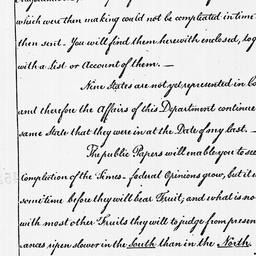 which were then making could not be compleated in time
then sent - You will find them herewith enclosed, tog
with a List or Account of them. —
Nine States are not yet represented in Co
and therefore the Affairs of this Department continue
same State that they were in at the Date of my last. —
The public Papers will enable you to see
completion of the Times - federal Opinions grow, but it
sometime before they will bear Fruit; and what is no
with most other Fruits they will to judge from presen
ances ripen slower in the South than in the North.